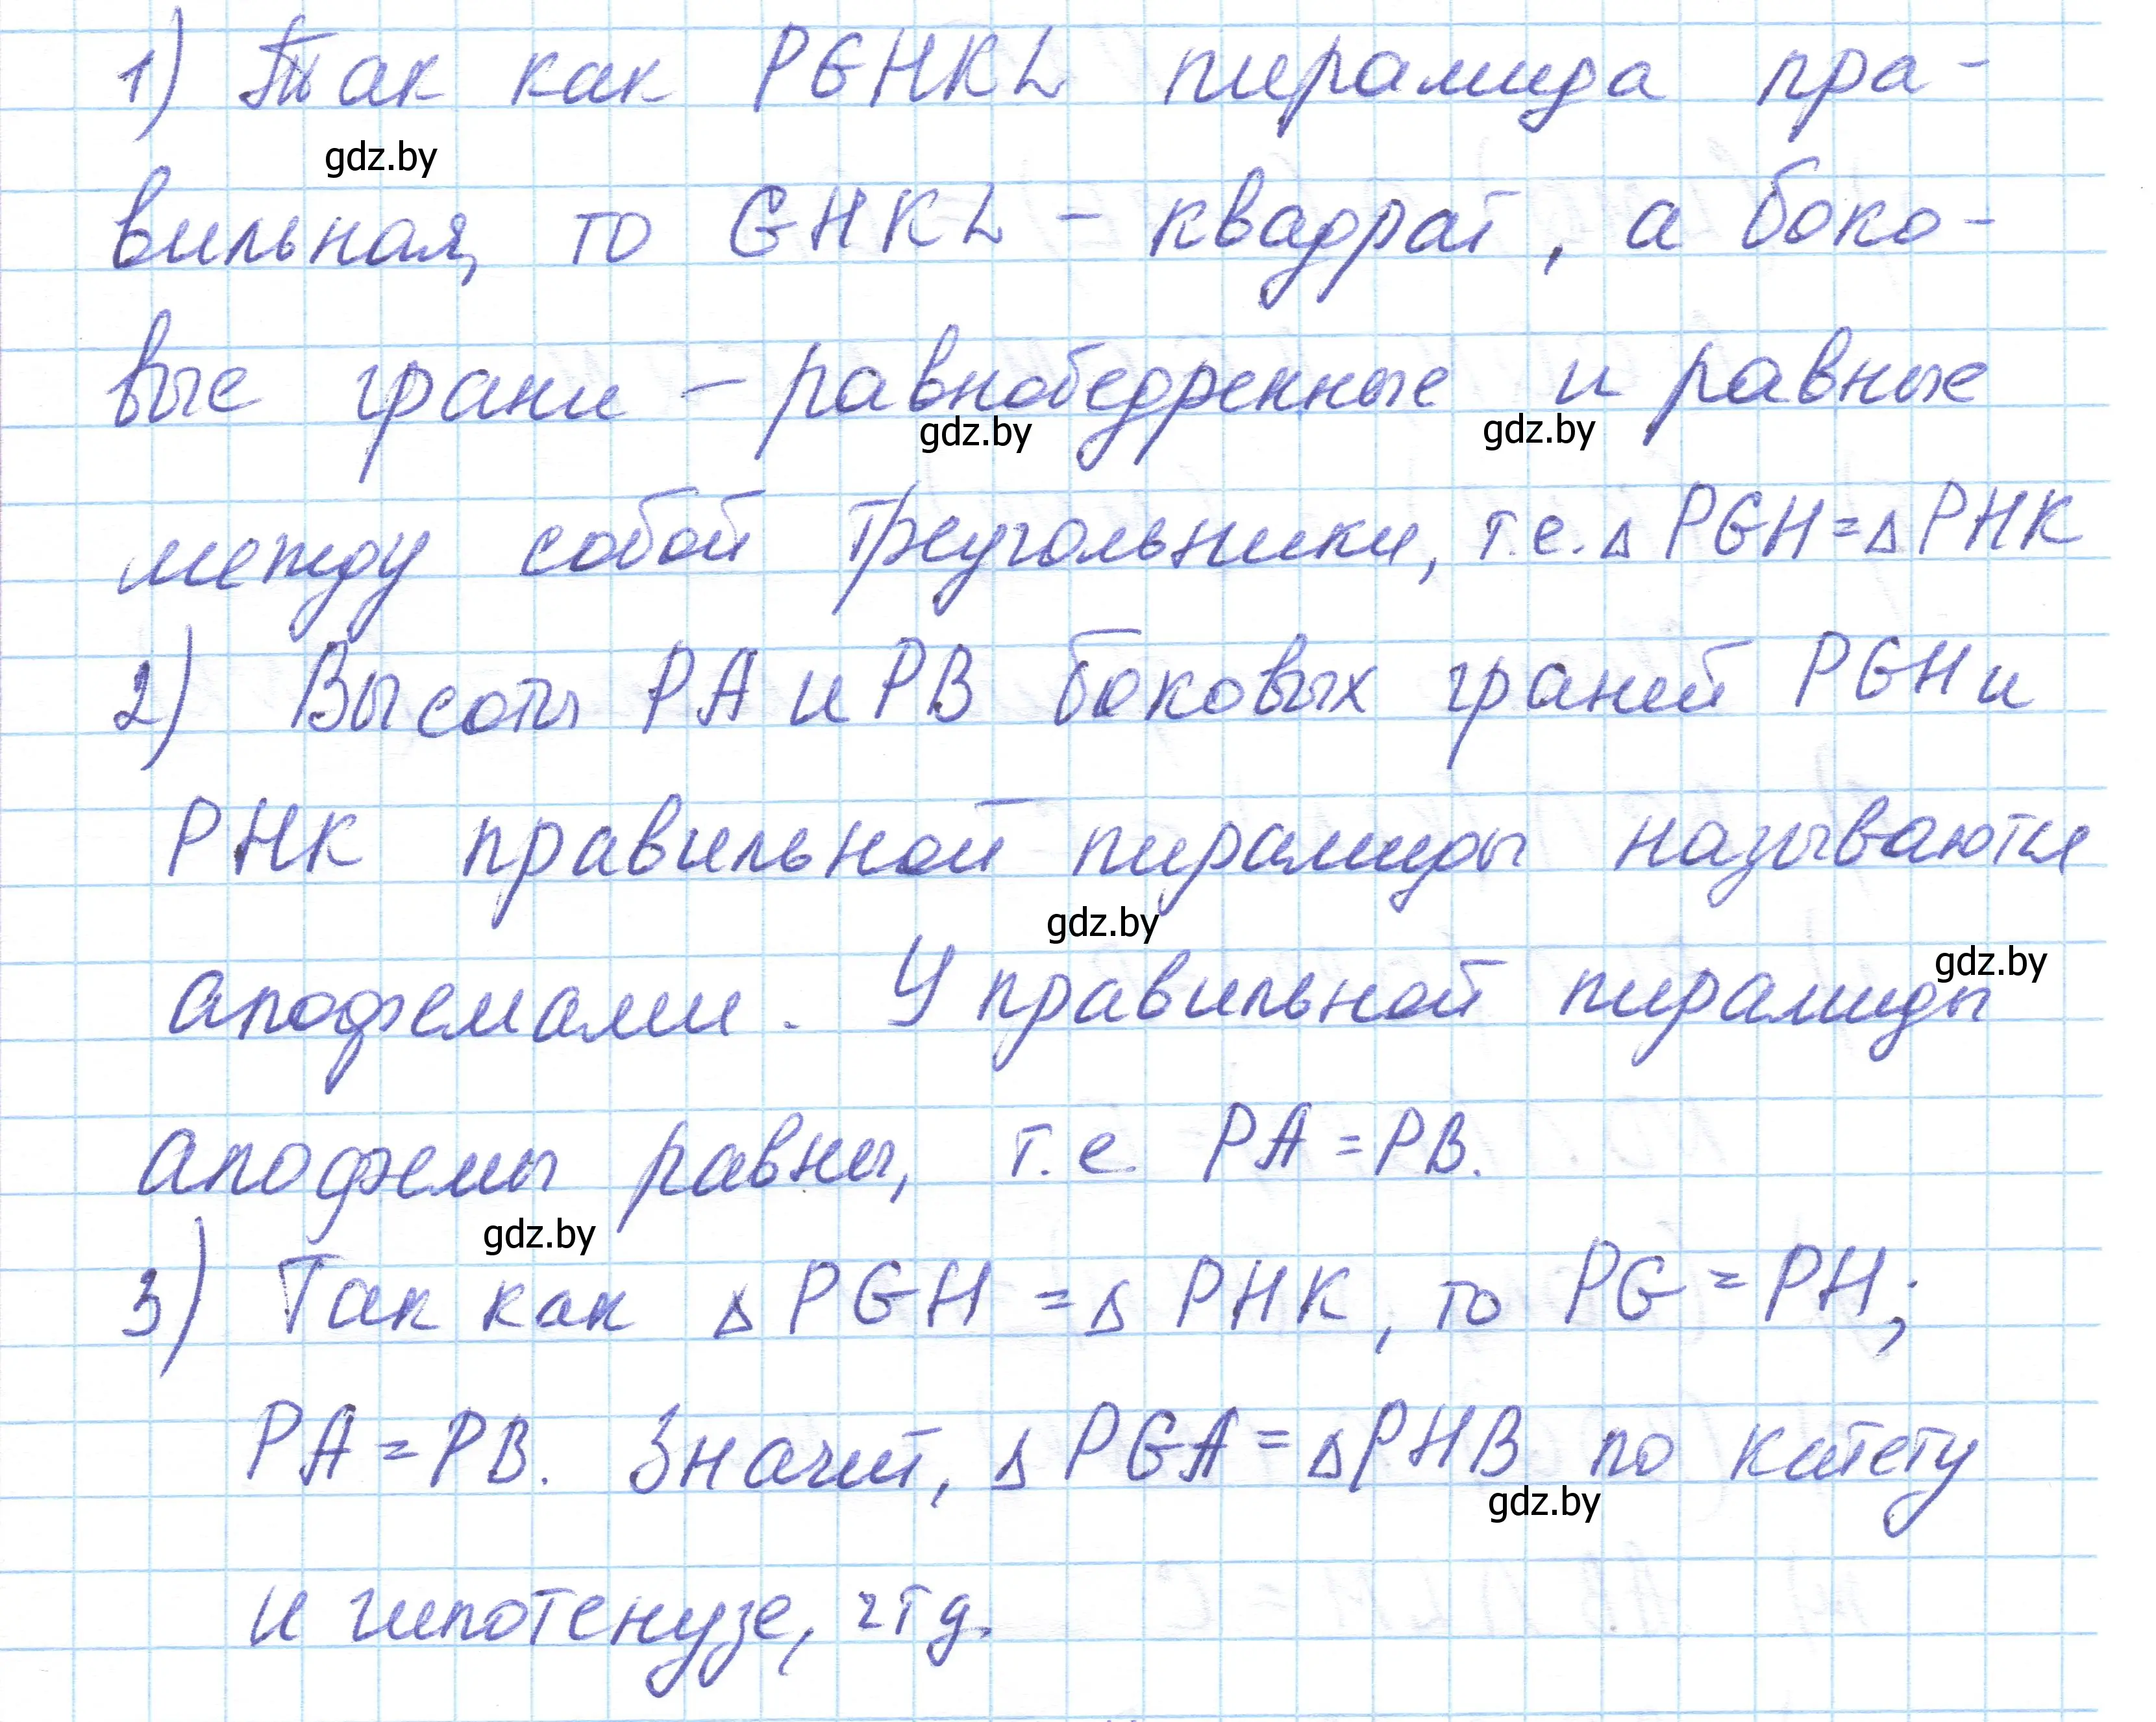 1) Так как PGHKL пирамида пра-
gdz.by
вильная, то GHKL – квадрат, а боко-
вые грани – равнобедренные и равные
gdz.by gdz.by
между собой треугольники, т.е. △ PGH = △ PHK
2) Высоты PA и PB боковых граней PGH и
PHK правильной пирамиды называются
gdz.by
апофемами. У правильной пирамиды
gdz.by
апофемы равны, т.е. PA = PB.
gdz.by
3) Так как △ PGH = △ PHK, то PG = PH;
PA = PB. Значит, △ PGA = △ PHB по катету
gdz.by
и гипотенузе, чтд.